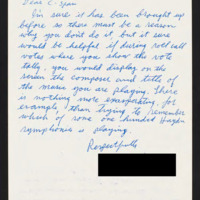 Dear C-Span
I'm sure it has been brought up
before so there must be a reason
why you don't do it, but it sure
would be helpful if during roll call
votes where you show the vote
tally you would display on the
screen the composer and title of
the music you are playing, there
is nothing more exasperating, for
example than trying to remember
which of some one hundred Haydn
symphonies is playing.
Respectfully